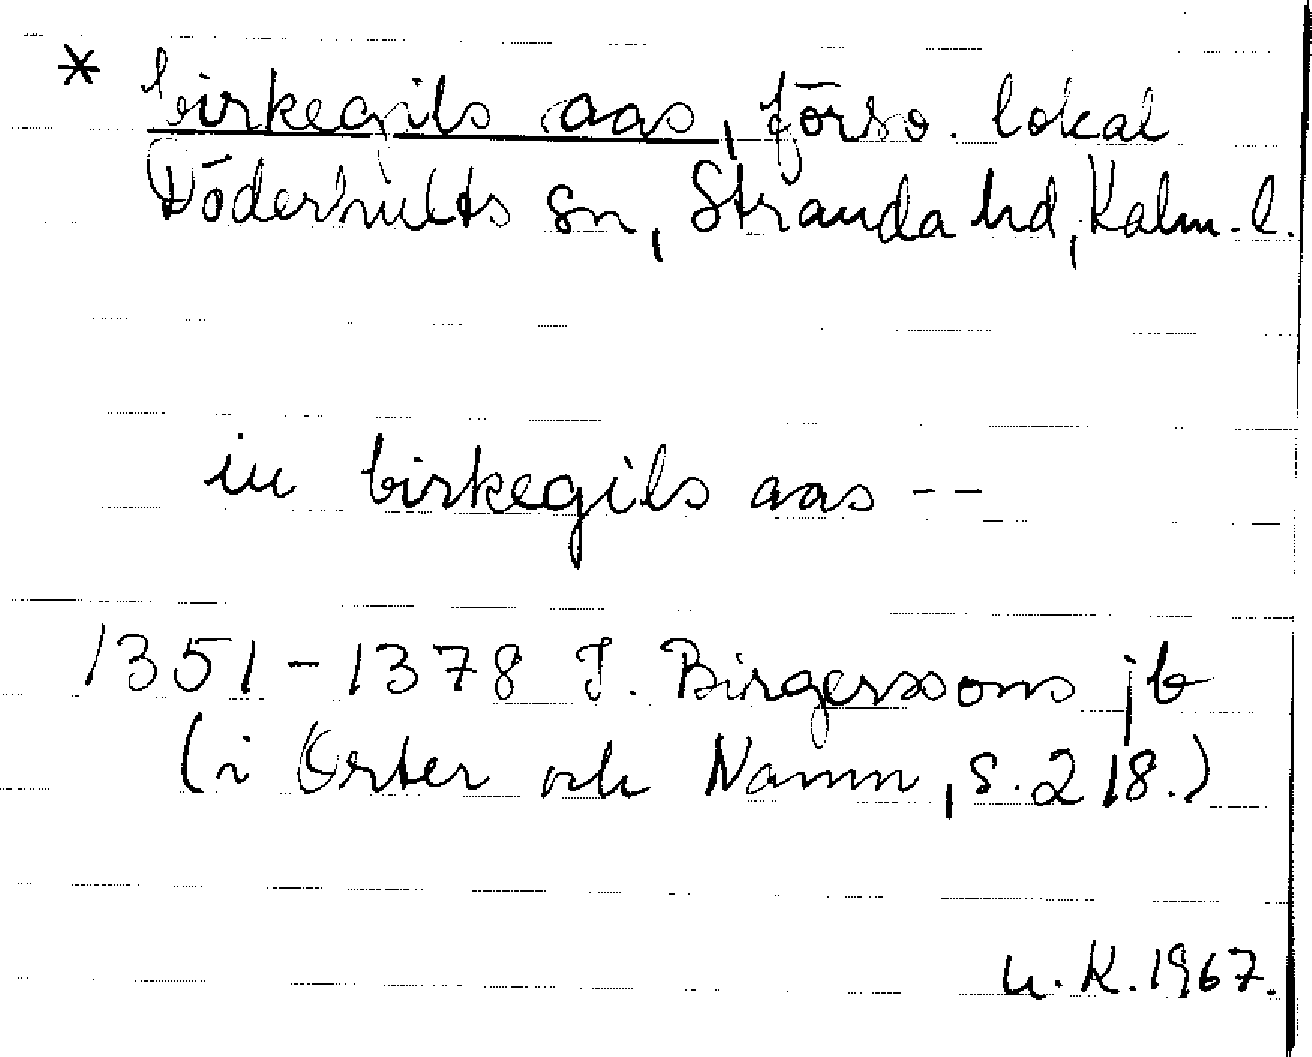 * birkegils aas, försv. lokal
Döderhults sn, Stranda hd, Kalm. l.
in birkegils aas --
1351-1378 J. Birgerssons jb
(i Orter och Namn, s. 218.)
u. K. 1967.